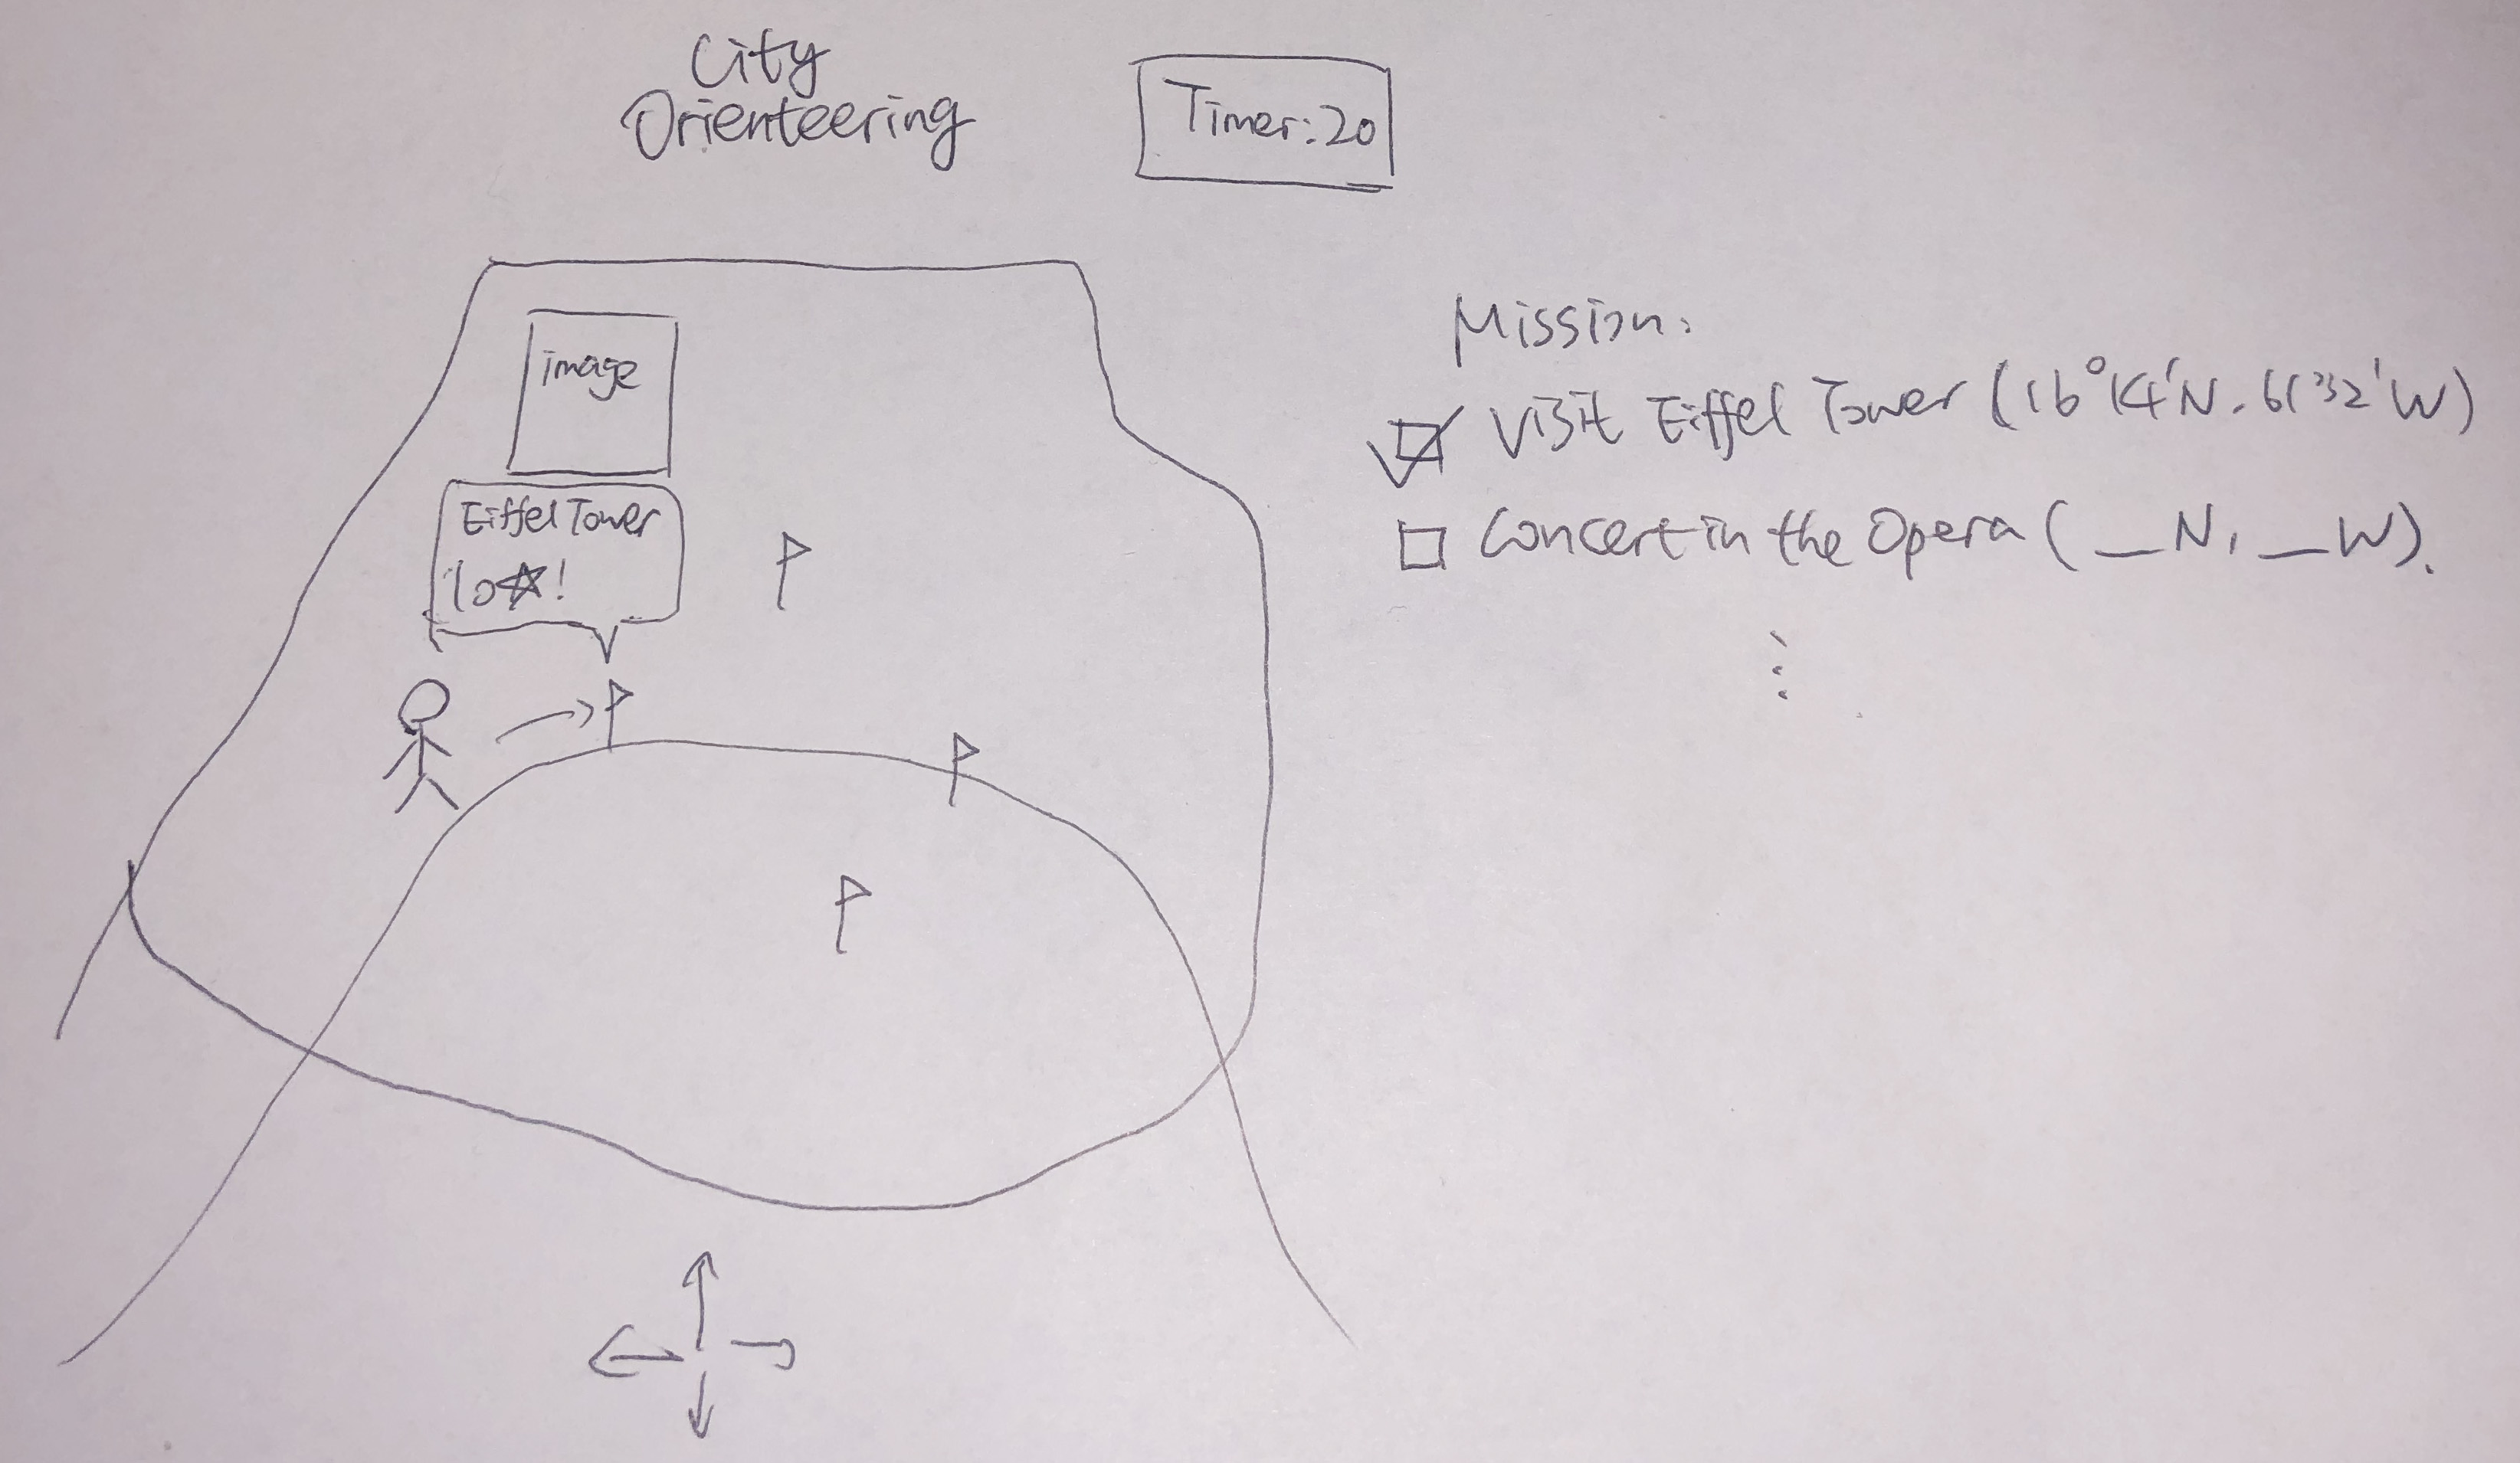 City
Orienteering
Timer: 20
image
Eiffel Tower
10☆!
Mission:
Visit Eiffel Tower (16°14'N. 61°32'W)
Concert in the Opera ( _N, _W).
⋮